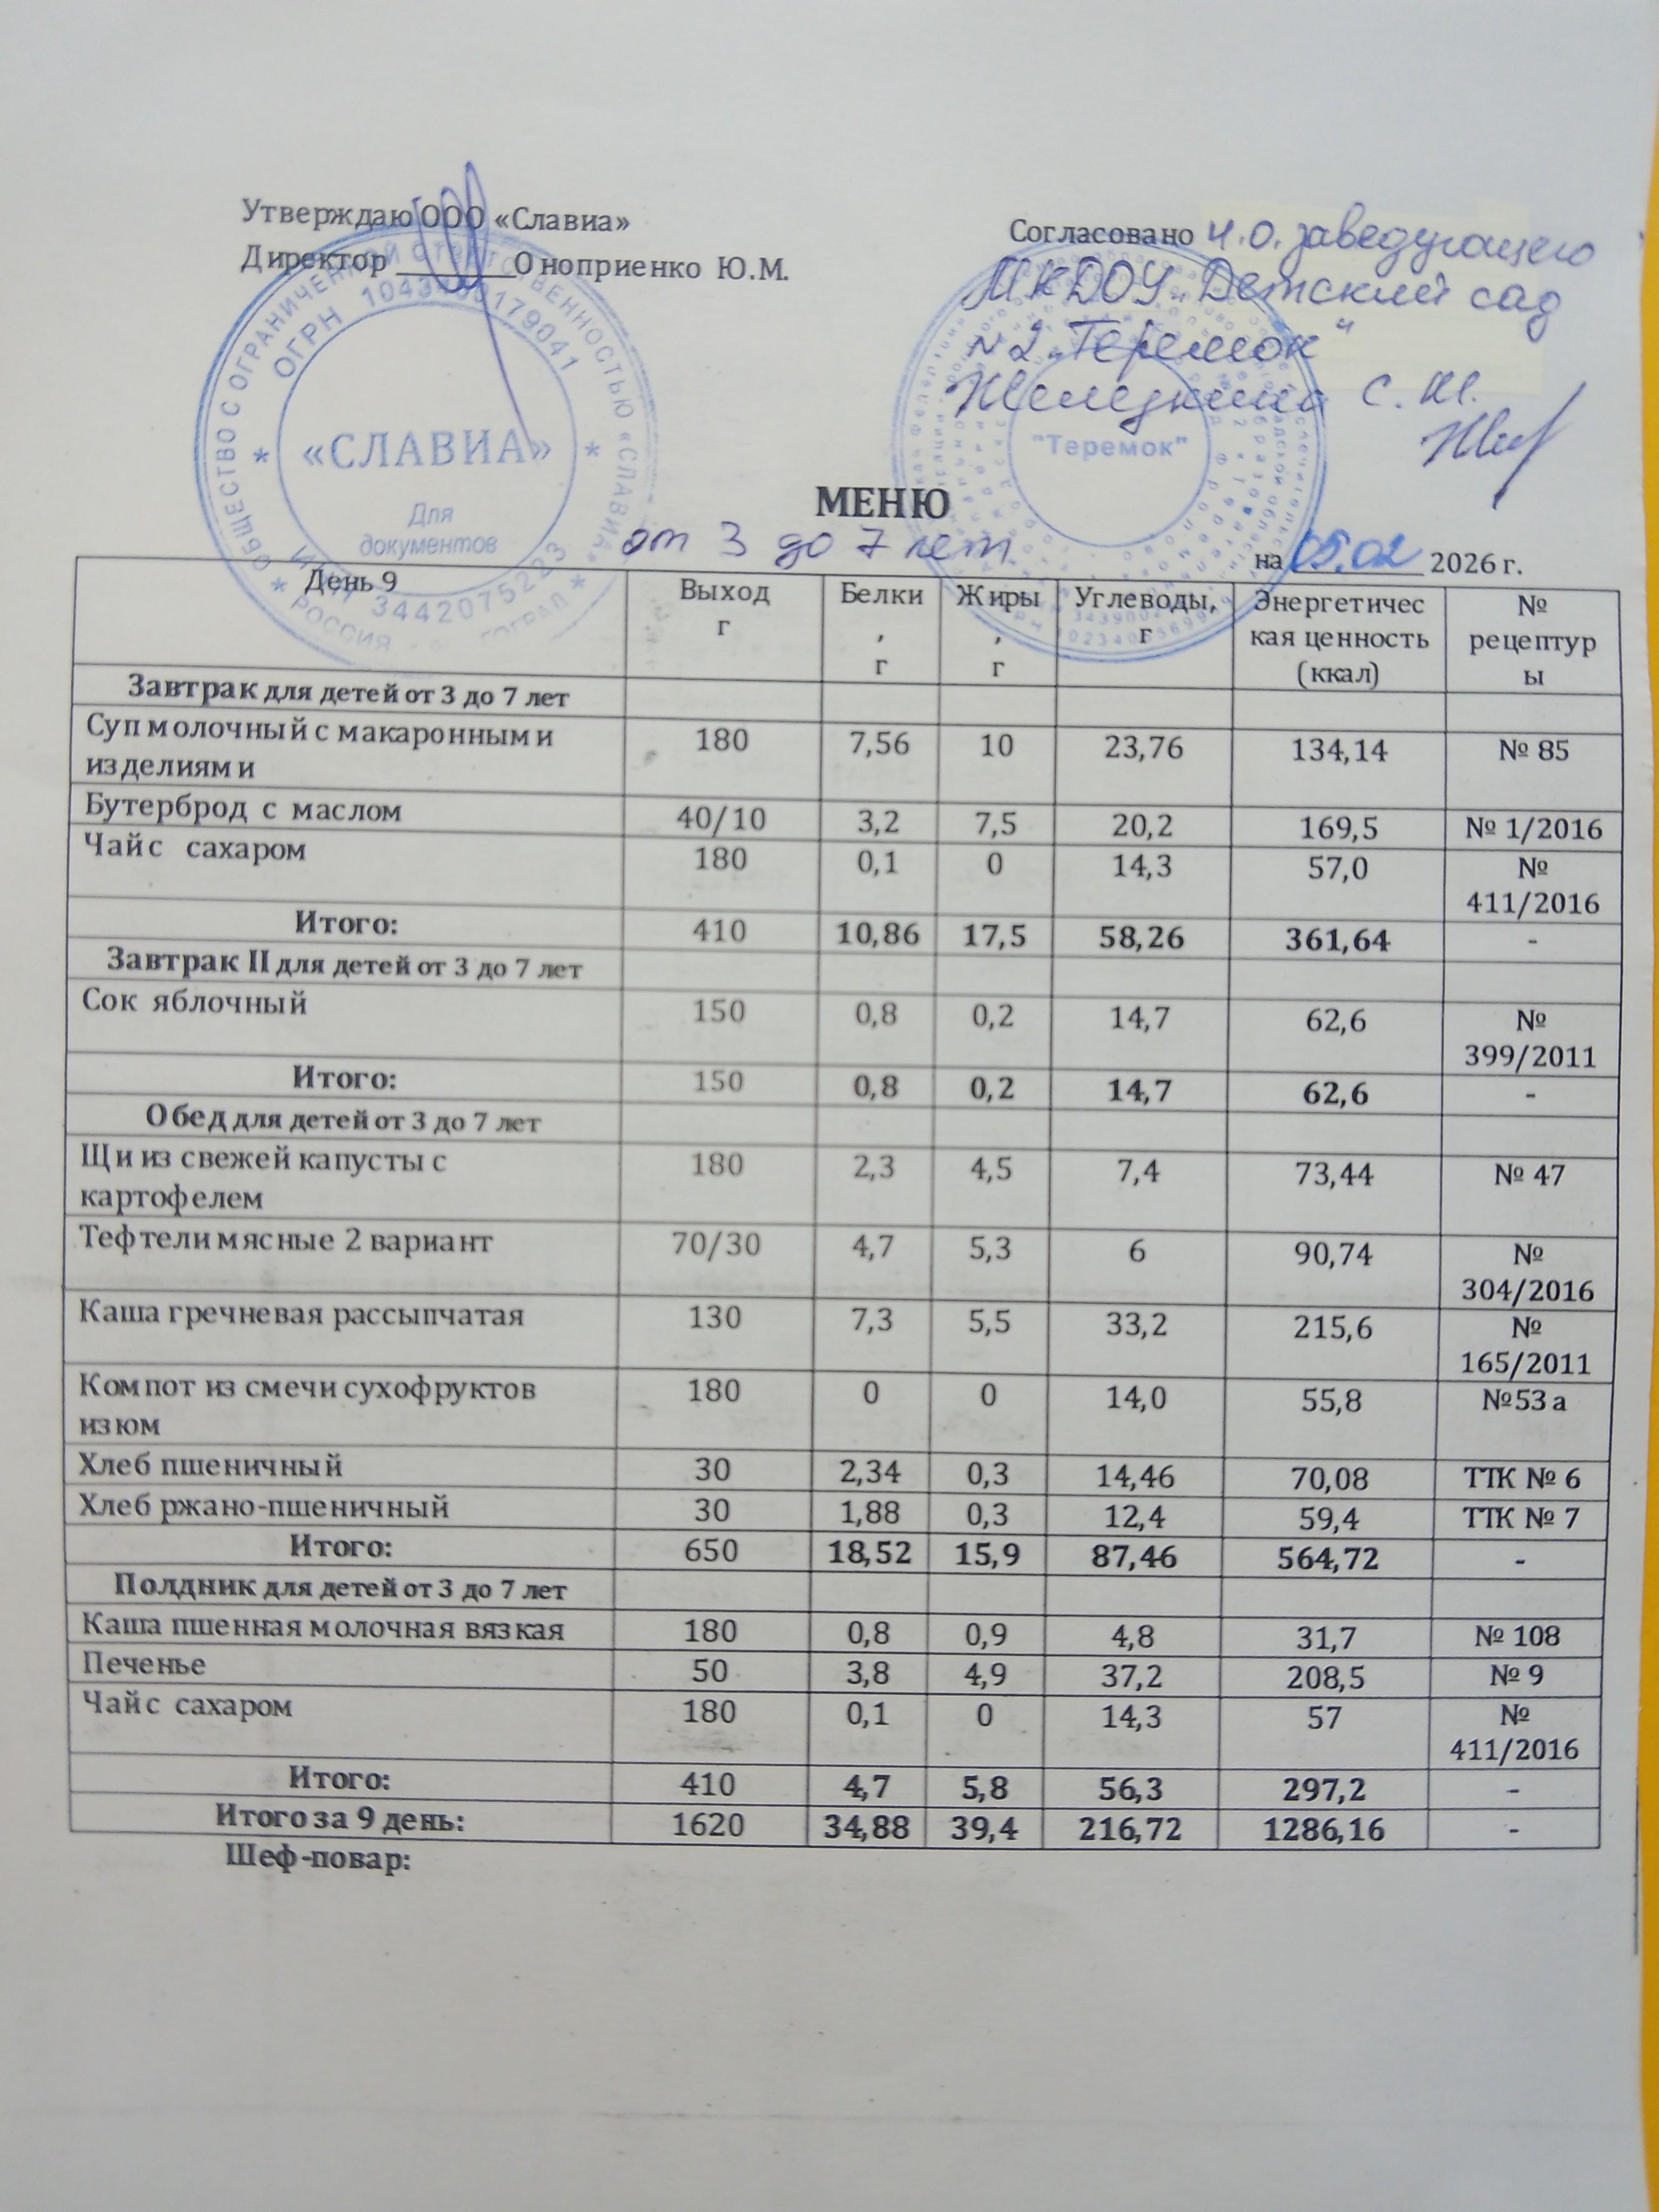 Утверждаю ООО «Славиа»
Директор ________Оноприенко Ю.М.
Согласовано И.о. заведующего
МКДОУ "Детский сад
№2 "Теремок"
С. Н.
ОБЩЕСТВО С ОГРАНИЧЕННОЙ ОТВЕТСТВЕННОСТЬЮ «СЛАВИА»
ОГРН
«СЛАВИА»
Для
документов
ИНН 3442075223
РОССИЯ
"Теремок"
МЕНЮ
от 3 до 7 лет
на 05.02 2026 г.
День 9 Выход г Белки, г Жиры, г Углеводы, г Энергетичес кая ценность (ккал) № рецептур ы
Завтрак для детей от 3 до 7 лет
Суп молочный с макаронными изделиями 180 7,56 10 23,76 134,14 № 85
Бутерброд с маслом 40/10 3,2 7,5 20,2 169,5 № 1/2016
Чай с сахаром 180 0,1 0 14,3 57,0 № 411/2016
Итого: 410 10,86 17,5 58,26 361,64 -
Завтрак II для детей от 3 до 7 лет
Сок яблочный 150 0,8 0,2 14,7 62,6 № 399/2011
Итого: 150 0,8 0,2 14,7 62,6 -
Обед для детей от 3 до 7 лет
Щи из свежей капусты с картофелем 180 2,3 4,5 7,4 73,44 № 47
Тефтели мясные 2 вариант 70/30 4,7 5,3 6 90,74 № 304/2016
Каша гречневая рассыпчатая 130 7,3 5,5 33,2 215,6 № 165/2011
Компот из смечи сухофруктов изюм 180 0 0 14,0 55,8 №53 а
Хлеб пшеничный 30 2,34 0,3 14,46 70,08 ТТК № 6
Хлеб ржано-пшеничный 30 1,88 0,3 12,4 59,4 ТТК № 7
Итого: 650 18,52 15,9 87,46 564,72 -
Полдник для детей от 3 до 7 лет
Каша пшенная молочная вязкая 180 0,8 0,9 4,8 31,7 № 108
Печенье 50 3,8 4,9 37,2 208,5 № 9
Чай с сахаром 180 0,1 0 14,3 57 № 411/2016
Итого: 410 4,7 5,8 56,3 297,2 -
Итого за 9 день: 1620 34,88 39,4 216,72 1286,16 -
Шеф-повар: